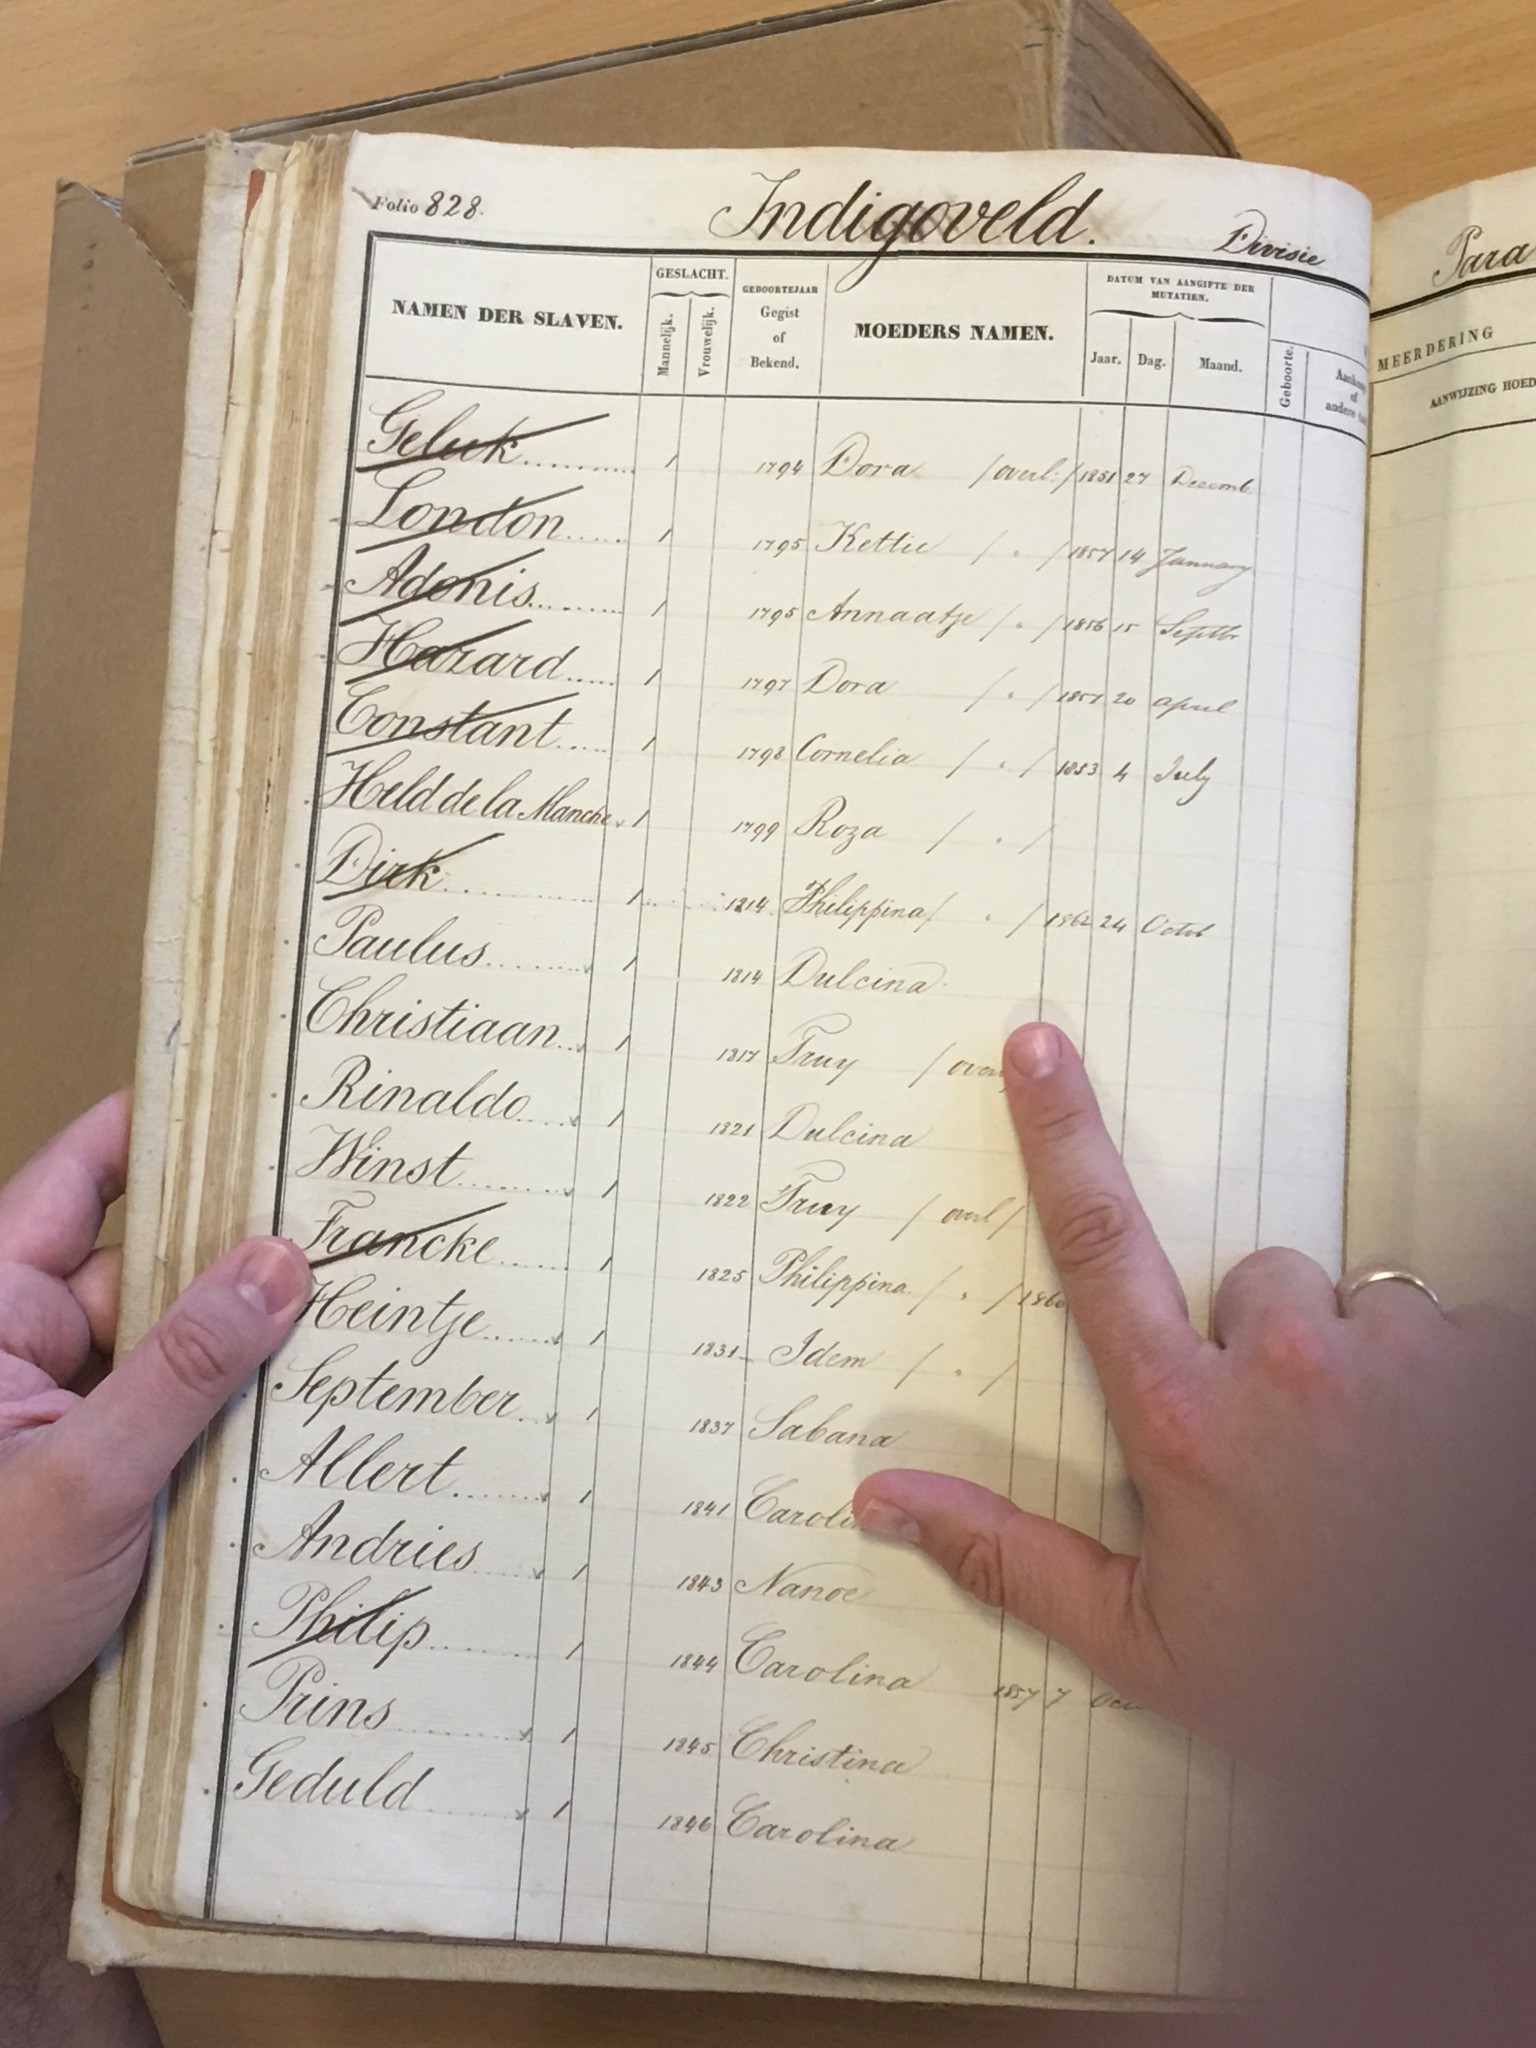 Folio 828.
Indigoveld.
Divisie
Para
NAMEN DER SLAVEN.
GESLACHT.
Mannelijk.
Vrouwelijk.
GEBOORTEJAAR
Gegist
of
Bekend.
MOEDERS NAMEN.
DATUM VAN AANGIFTE DER
MUTATIEN.
Jaar. Dag. Maand.
Geboorte.
of
MEERDERING
AANWIJZING
Geluk 1 1794 Dora /overl:/ 1851 27 Decemb.
London 1 1795 Kettie / " / 1857 14 January
Adonis 1 1795 Annaatje / " / 1856 15 Septbr
Hazard 1 1797 Dora / " / 1857 20 april
Constant 1 1798 Cornelia / " / 1853 4 July
Held de la Manche 1 1799 Roza / " /
Dirk 1 1814 Philippina / " / 1862 24 Octob
Paulus 1 1814 Dulcina
Christiaan 1 1817 Truy
Rinaldo 1 1821 Dulcina
Winst 1 1822 Truy / overl /
Francke 1 1825 Philippina / " /
Heintje 1 1831 Idem / " /
September 1 1837 Sabana
Allert 1 1841
Andries 1 1843 Nanoe
Philip 1 1844 Carolina 1857 7
Prins 1 1845 Christina
Geduld 1 1846 Carolina